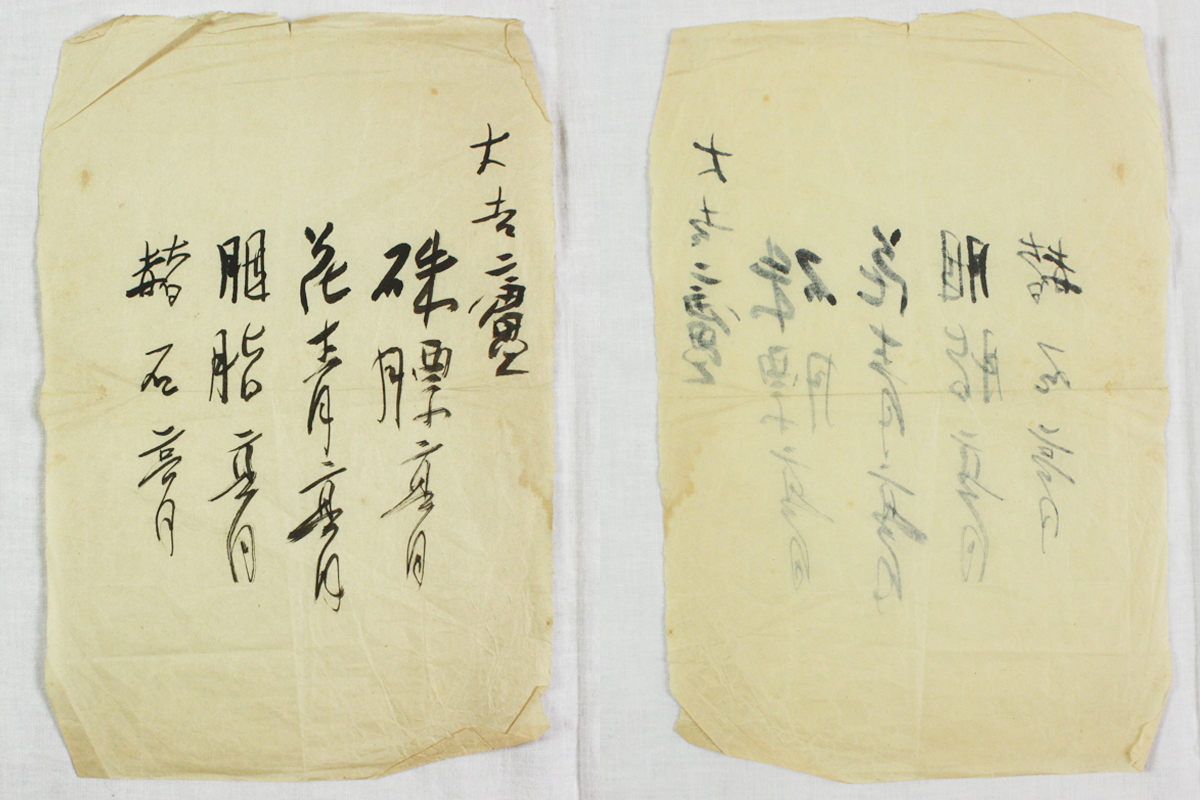 大吉廬
硃膘膏
花青膏
胭脂膏
赭石膏